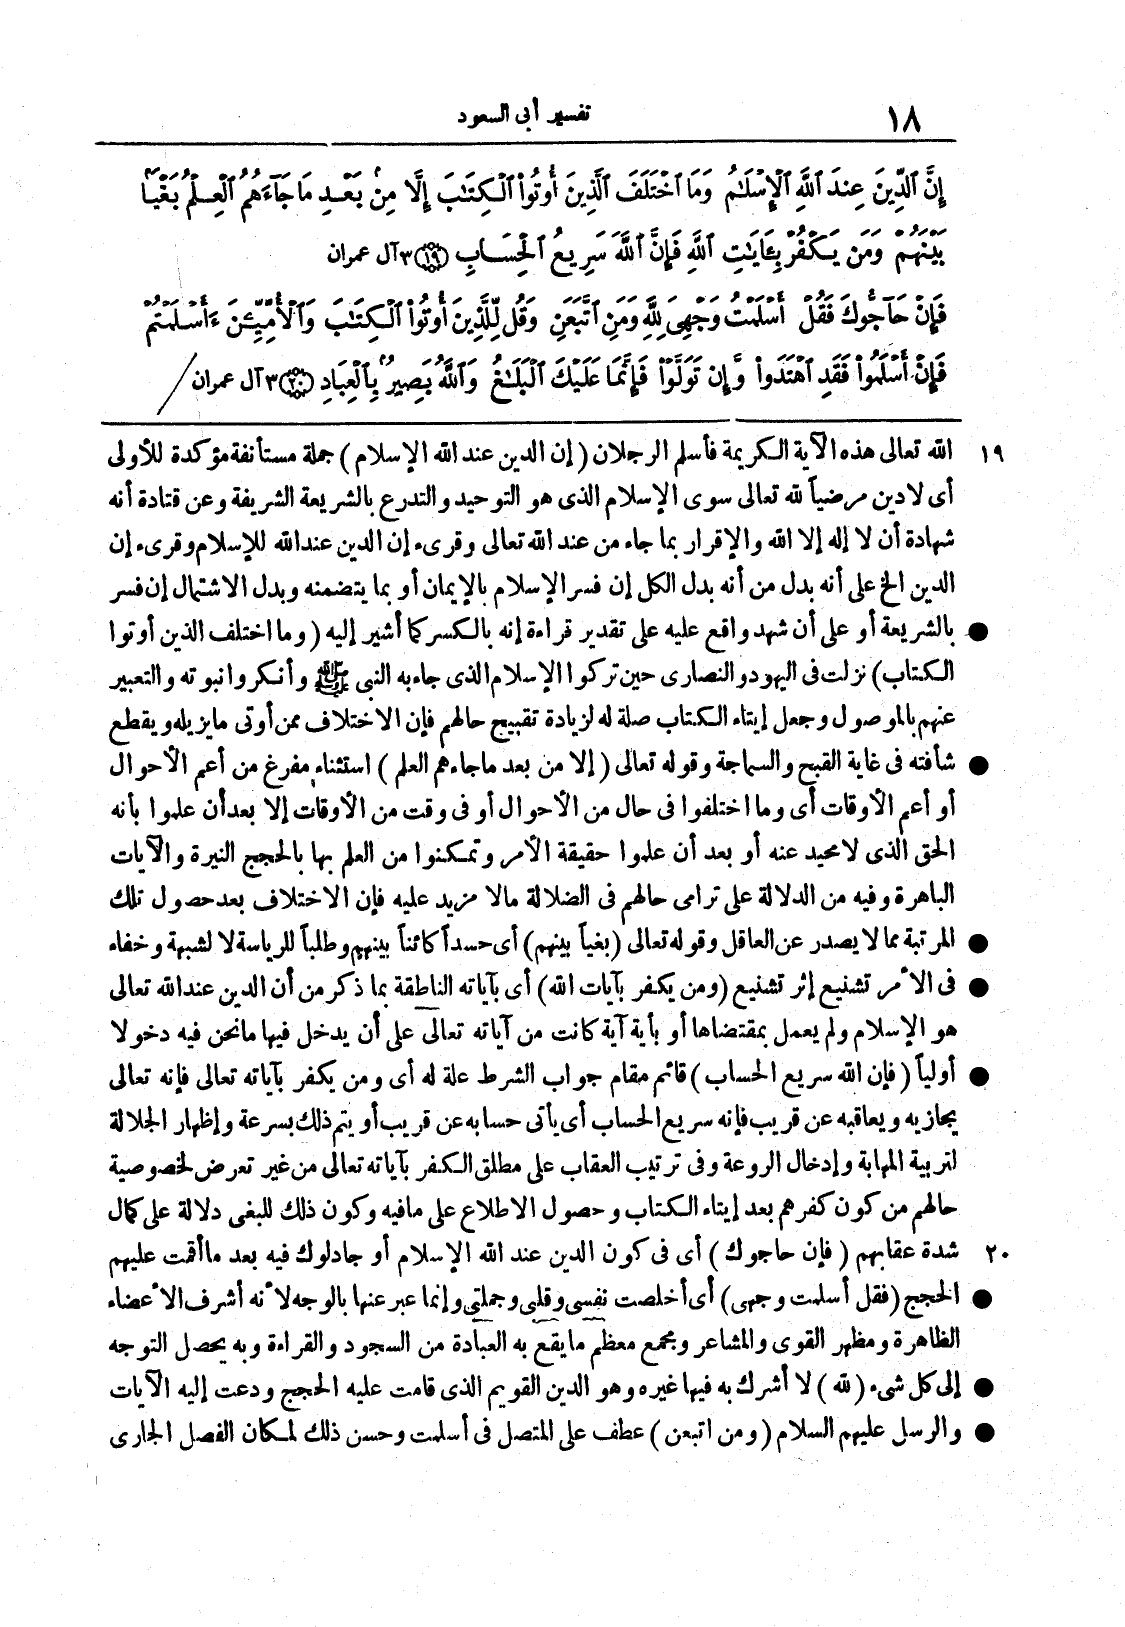 ١٨
تفسير أبى السعود
إِنَّ ٱلدِّينَ عِندَ ٱللَّهِ ٱلْإِسْلَٰمُ وَمَا ٱخْتَلَفَ ٱلَّذِينَ أُوتُوا۟ ٱلْكِتَٰبَ إِلَّا مِنۢ بَعْدِ مَا جَآءَهُمُ ٱلْعِلْمُ بَغْيًۢا
بَيْنَهُمْ وَمَن يَكْفُرْ بِـَٔايَٰتِ ٱللَّهِ فَإِنَّ ٱللَّهَ سَرِيعُ ٱلْحِسَابِ (١٩) ٣ آل عمران
فَإِنْ حَآجُّوكَ فَقُلْ أَسْلَمْتُ وَجْهِىَ لِلَّهِ وَمَنِ ٱتَّبَعَنِ وَقُل لِّلَّذِينَ أُوتُوا۟ ٱلْكِتَٰبَ وَٱلْأُمِّيِّۦنَ ءَأَسْلَمْتُمْ
فَإِنْ أَسْلَمُوا۟ فَقَدِ ٱهْتَدَوا۟ وَّإِن تَوَلَّوْا۟ فَإِنَّمَا عَلَيْكَ ٱلْبَلَٰغُ وَٱللَّهُ بَصِيرٌۢ بِٱلْعِبَادِ (٢٠) ٣ آل عمران
١٩ الله تعالى هذه الآية الكريمة فأسلم الرجلان (إن الدين عند الله الإسلام) جملة مستأنفة مؤكدة للأولى
أى لا دين مرضياً لله تعالى سوى الإسلام الذى هو التوحيد والتدرع بالشريعة الشريفة وعن قتادة أنه
شهادة أن لا إله إلا الله والإقرار بما جاء من عند الله تعالى وقرىء إن الدين عند الله للإسلام وقرىء إن
الدين الخ على أنه بدل من أنه بدل الكل إن فسر الإسلام بالإيمان أو بما يتضمنه وبدل الاشتمال إن فسر
● بالشريعة أو على أن شهد واقع عليه على تقدير قراءة إنه بالكسر كما أشير إليه (وما اختلف الذين أوتوا
الكتاب) نزلت فى اليهود والنصارى حين تركوا الإسلام الذى جاء به النبى ﷺ وأنكروا نبوته والتعبير
عنهم بالموصول وجعل إيتاء الكتاب صلة له لزيادة تقبيح حالهم فإن الاختلاف ممن أوتى ما يزيله ويقطع
● شأفته فى غاية القبح والسماجة وقوله تعالى (إلا من بعد ما جاءهم العلم) استثناء مفرغ من أعم الأحوال
أو أعم الأوقات أى وما اختلفوا فى حال من الأحوال أو فى وقت من الأوقات إلا بعد أن علموا بأنه
الحق الذى لا محيد عنه أو بعد أن علموا حقيقة الأمر وتمكنوا من العلم بها بالحجج النيرة والآيات
الباهرة وفيه من الدلالة على ترامى حالهم فى الضلالة مالا مزيد عليه فإن الاختلاف بعد حصول تلك
● المرتبة مما لا يصدر عن العاقل وقوله تعالى (بغياً بينهم) أى حسداً كائناً بينهم وطلباً للرياسة لا لشبهة وخفاء
● فى الأمر تشنيع إثر تشنيع (ومن يكفر بآيات الله) أى بآياته الناطقة بما ذكر من أن الدين عند الله تعالى
هو الإسلام ولم يعمل بمقتضاها أو بأية آية كانت من آياته تعالى على أن يدخل فيها ما نحن فيه دخولا
● أولياً (فإن الله سريع الحساب) قائم مقام جواب الشرط علة له أى ومن يكفر بآياته تعالى فإنه تعالى
يجازيه ويعاقبه عن قريب فإنه سريع الحساب أى يأتى حسابه عن قريب أو يتم ذلك بسرعة وإظهار الجلالة
لتربية المهابة وإدخال الروعة وفى ترتيب العقاب على مطلق الكفر بآياته تعالى من غير تعرض لخصوصية
حالهم من كون كفرهم بعد إيتاء الكتاب وحصول الاطلاع على مافيه وكون ذلك للبغى دلالة على كمال
٢٠ شدة عقابهم (فإن حاجوك) أى فى كون الدين عند الله الإسلام أو جادلوك فيه بعد ما أقمت عليهم
● الحجج (فقل أسلمت وجهى) أى أخلصت نفسى وقلبى وجملتى وإنما عبر عنها بالوجه لأنه أشرف الأعضاء
الظاهرة ومظهر القوى والمشاعر ومجمع معظم ما يقع به العبادة من السجود والقراءة وبه يحصل التوجه
● إلى كل شىء (لله) لا أشرك به فيها غيره وهو الدين القويم الذى قامت عليه الحجج ودعت إليه الآيات
● والرسل عليهم السلام (ومن اتبعن) عطف على المتصل فى أسلمت وحسن ذلك لمكان الفصل الجارى